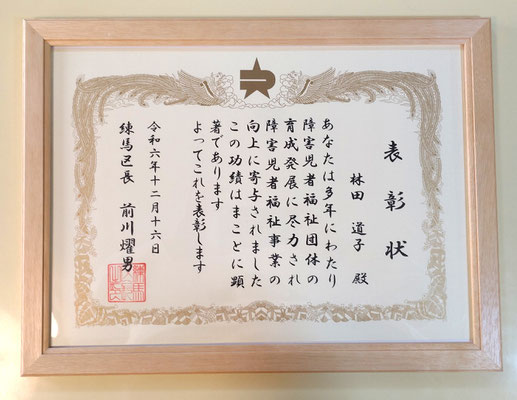 表彰状
林田道子殿
あなたは多年にわたり
障害児者福祉団体の
育成発展に尽力され
障害児者福祉事業の
向上に寄与されました
この功績はまことに顕
著であります
よってこれを表彰します
令和六年十二月十六日
練馬区長 前川燿男